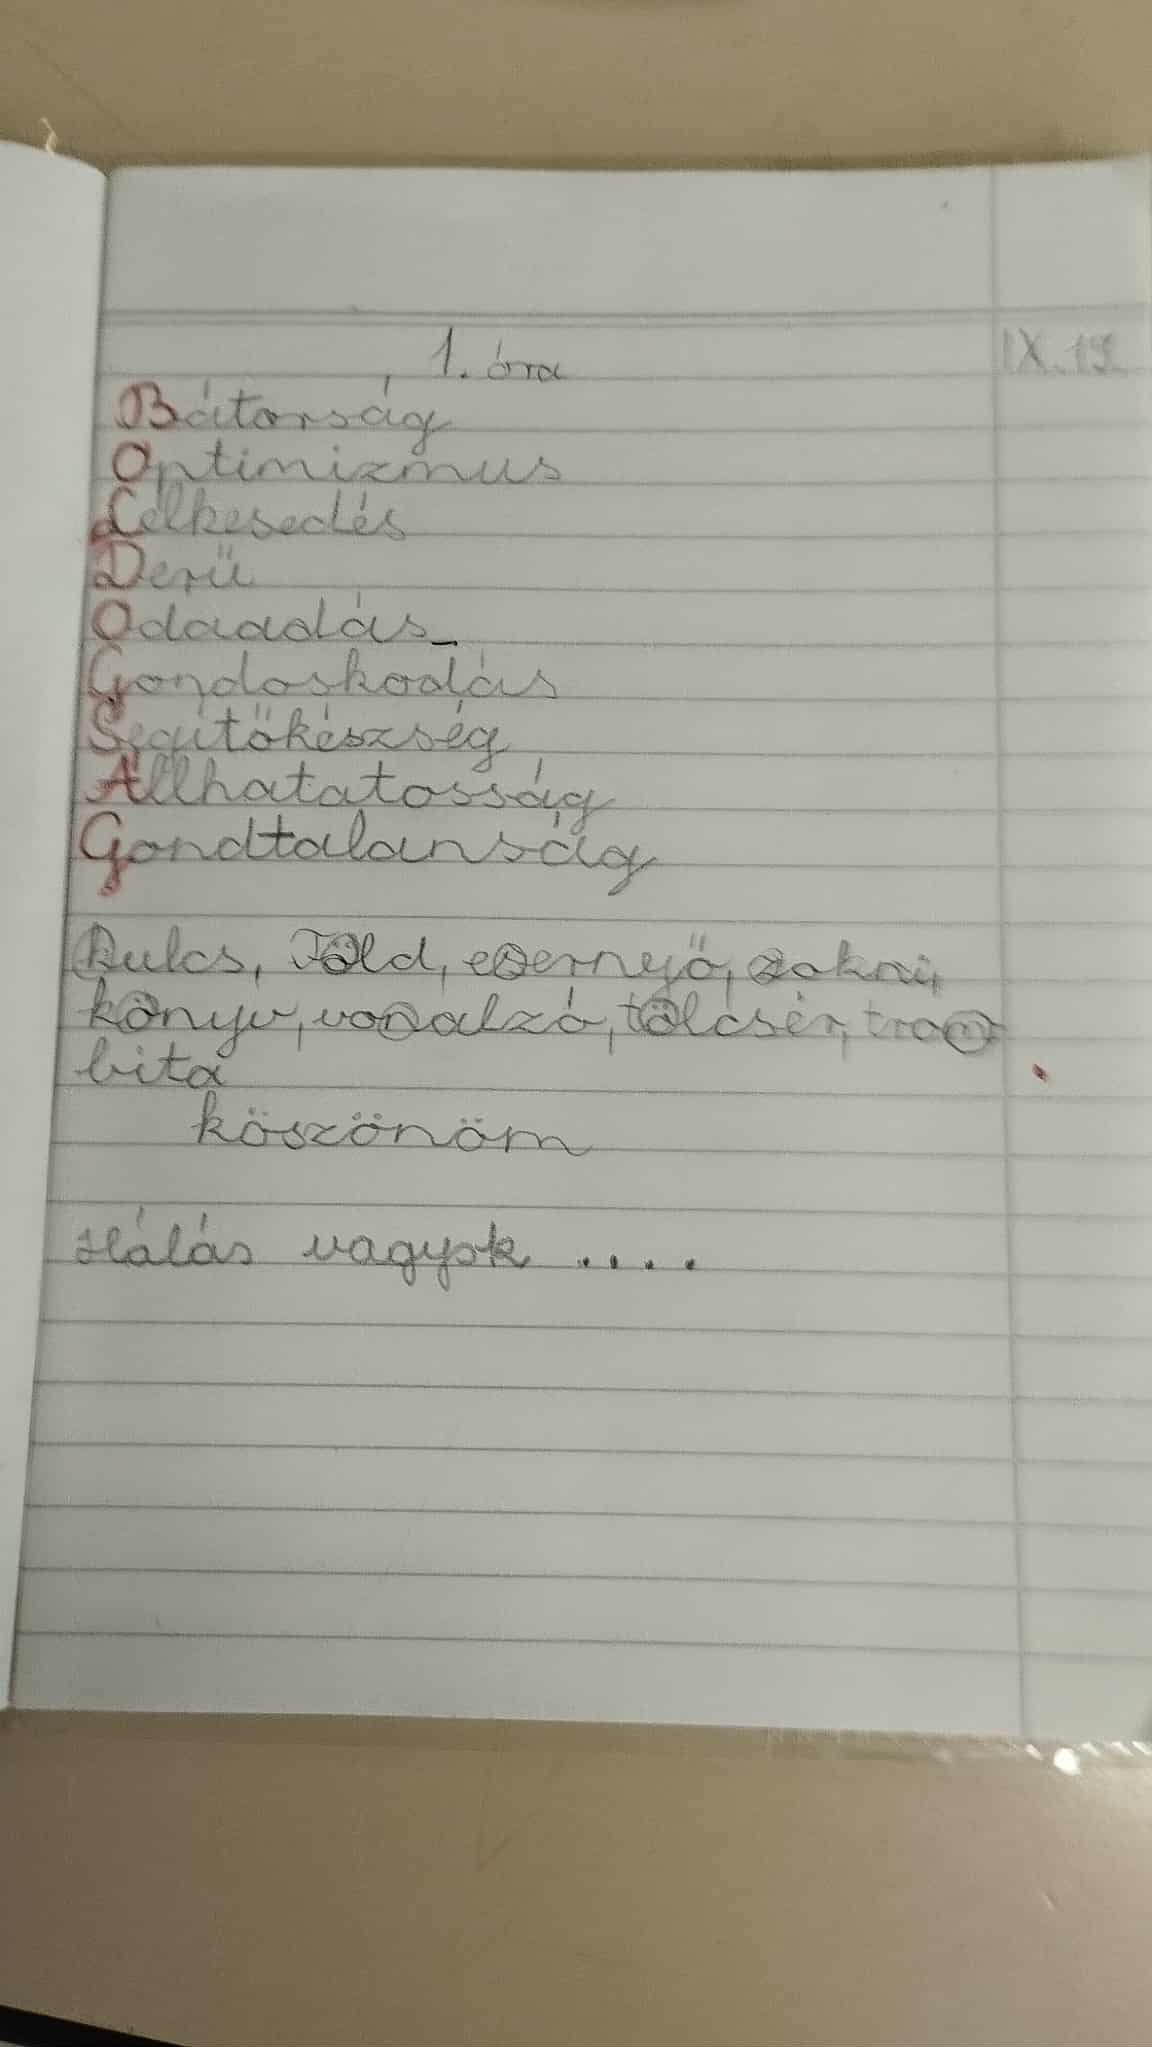 1. óra IX. 19.
Bátorság
Optimizmus
Lelkesedés
Derü
Odaadás
Gondoskodás
Segítőkészség
Állhatatosság
Gondtalanság
kulcs, Föld, esernyő, zokni,
könyv, vonalzó, tölcsér, trom
bita
köszönöm
Hálás vagyok ....